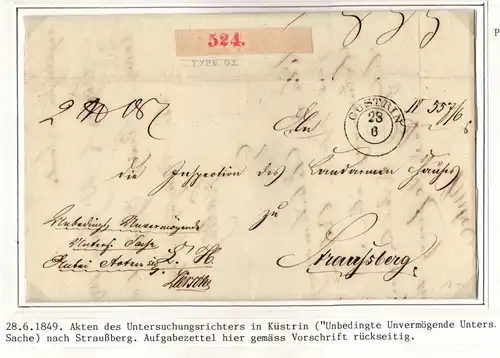 P
524.
TYPE 02
CÜSTRIN
28
6
An
die Inspection des Landarmen Hauses
zu
Straußberg.
Unbedingte Unvermögende
Unters. Sache
28.6.1849. Akten des Untersuchungsrichters in Küstrin ("Unbedingte Unvermögende Unters.
Sache) nach Straußberg. Aufgabezettel hier gemäss Vorschrift rückseitig.